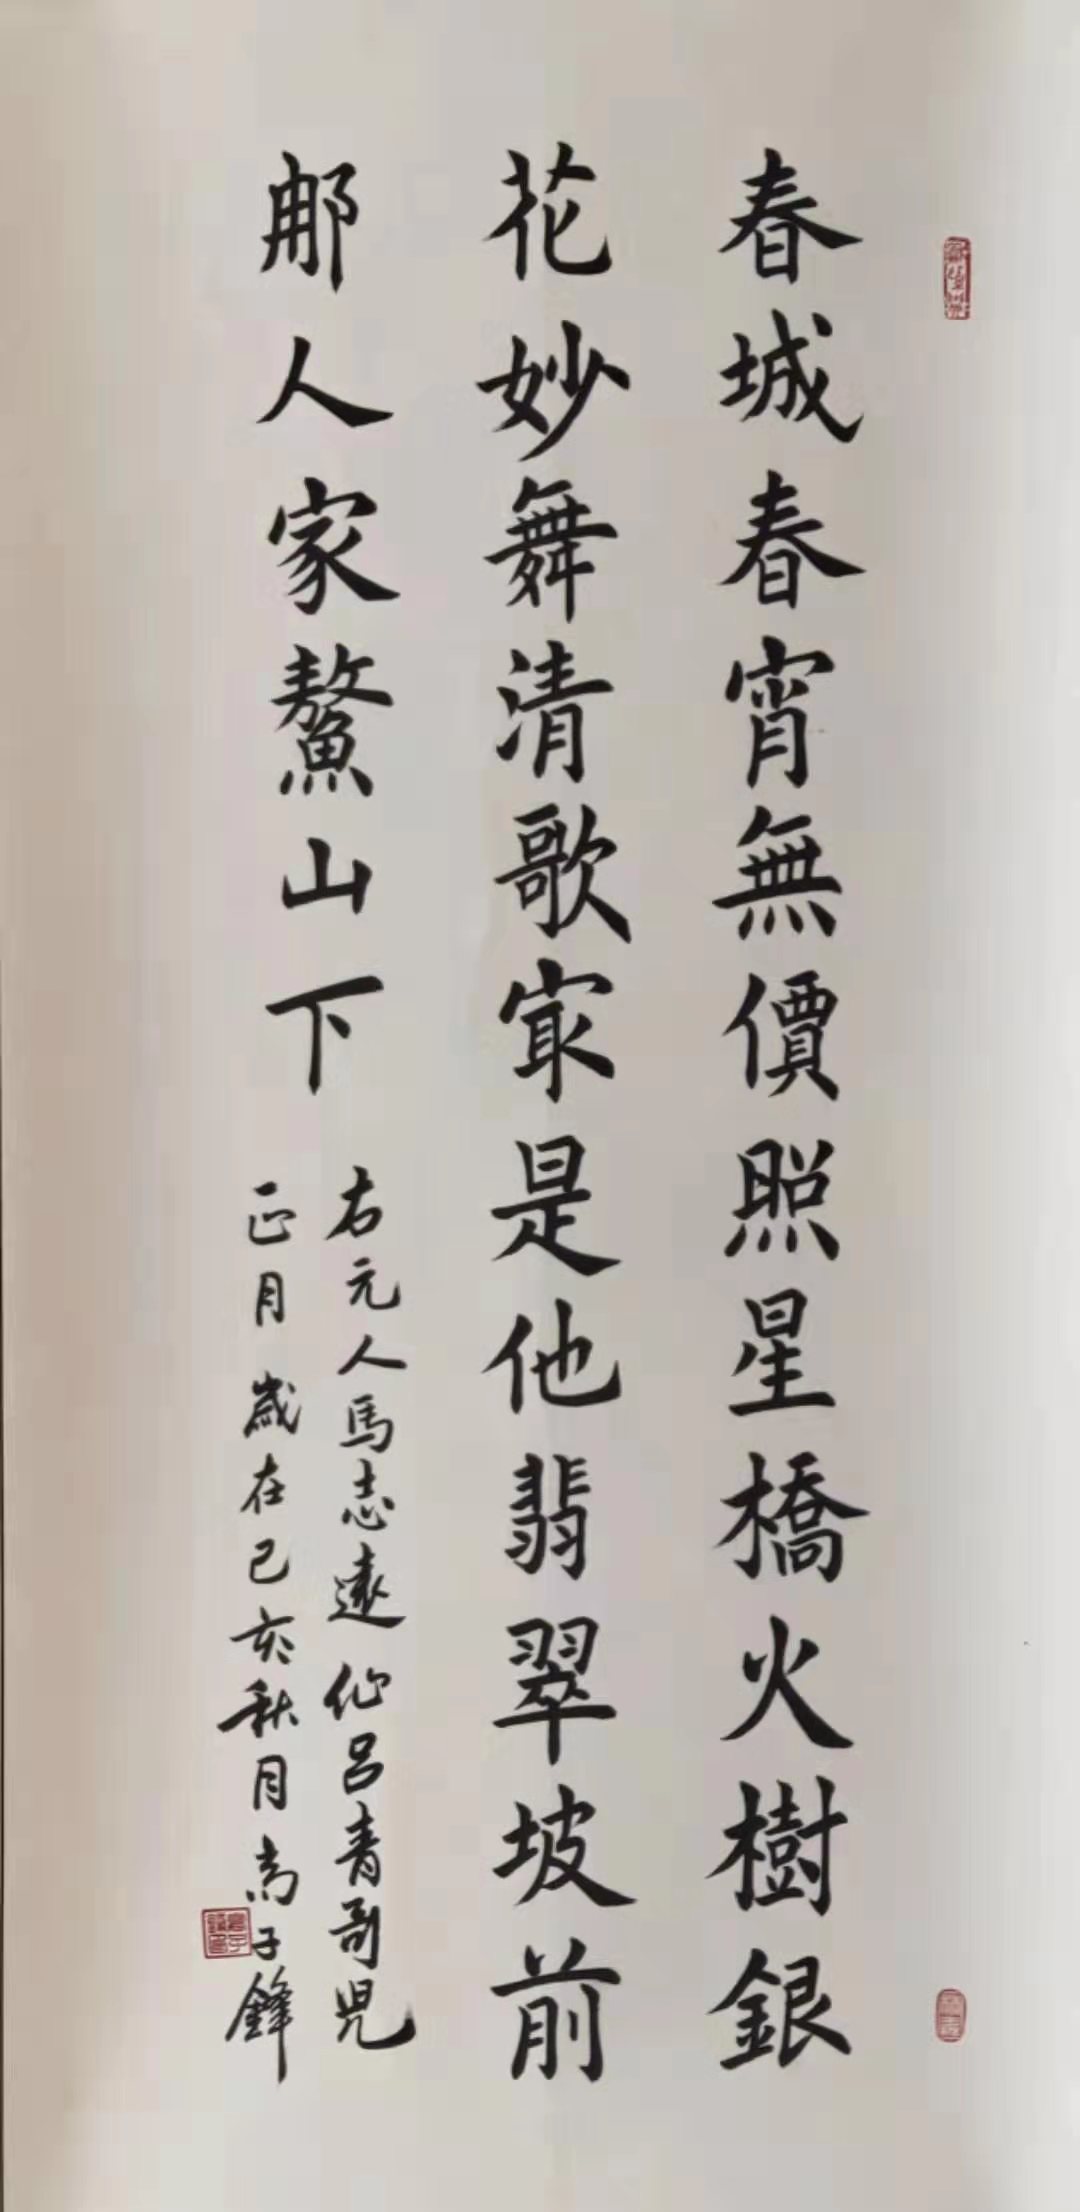 春城春宵無價照星橋火樹銀
花妙舞清歌冣是他翡翠坡前
那人家鰲山下
右元人馬志遠仙呂青哥兒
正月歲在己亥秋月尚子鋒